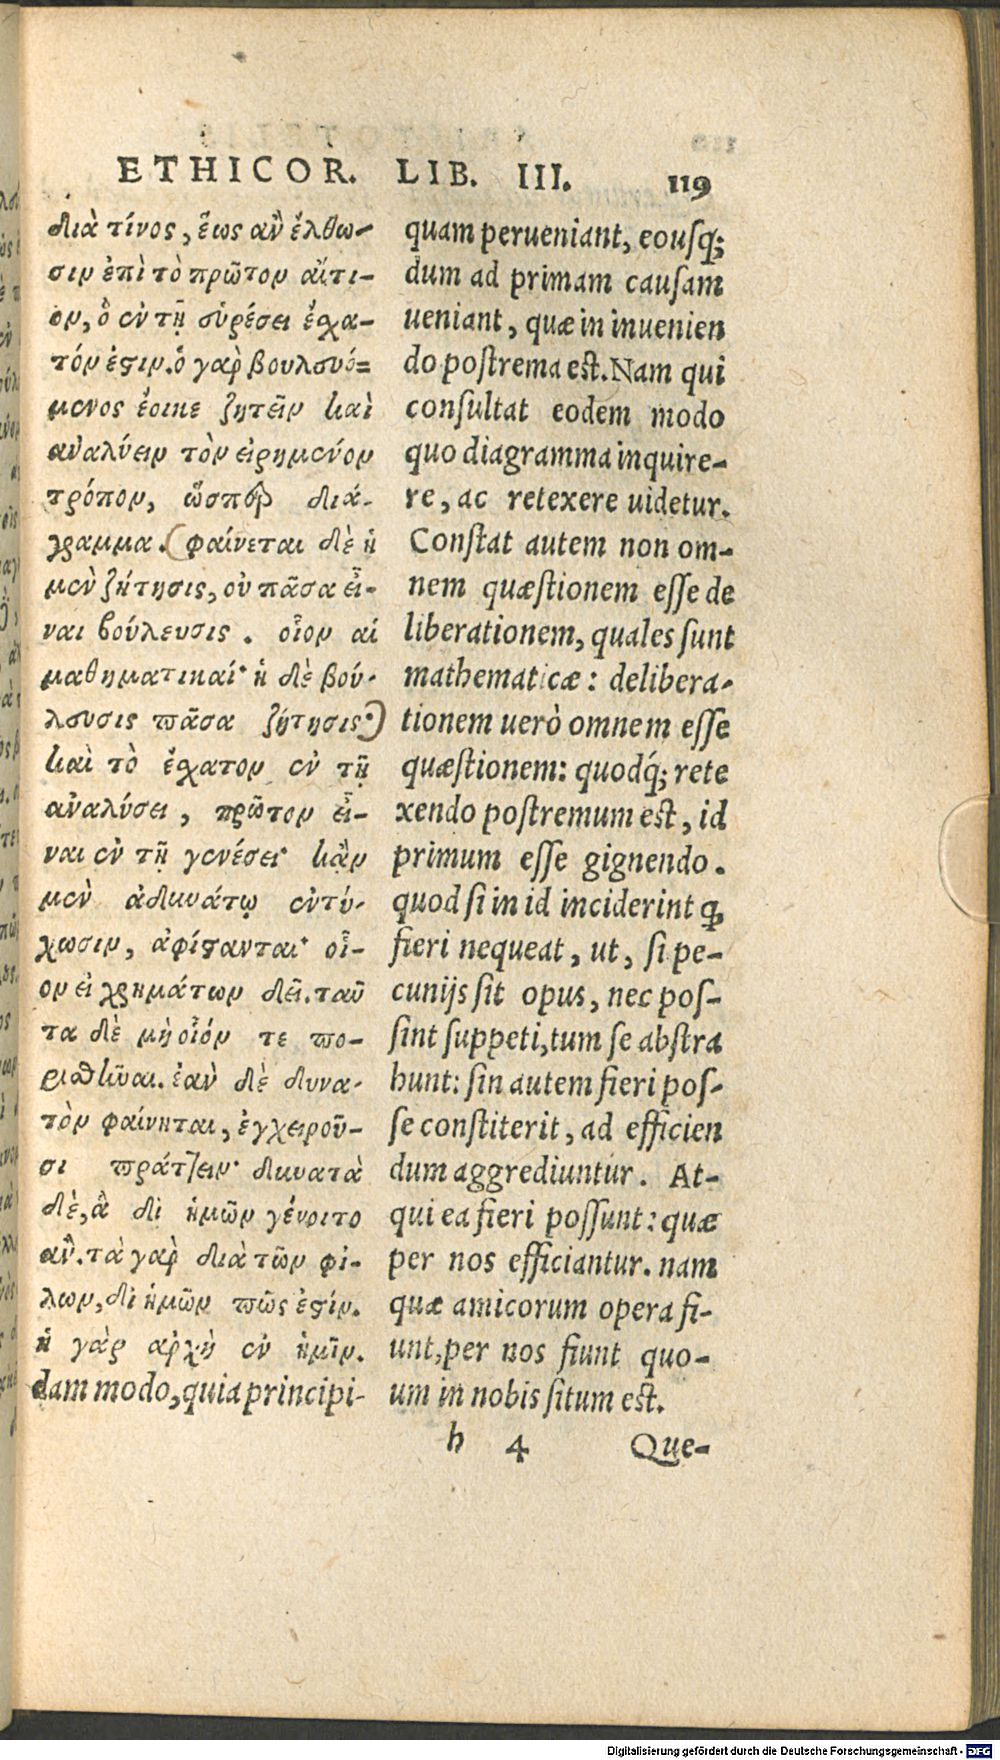 ETHICOR. LIB. III. 119
διὰ τίνος, ἕως ἂν ἔλθω-
σιν ἐπὶ τὸ πρῶτον αἴτι-
ον, ὃ ἐν τῇ εὑρέσει ἔσχα-
τόν ἐστιν. ὁ γὰρ βουλευό-
μενος ἔοικε ζητεῖν καὶ
ἀναλύειν τὸν εἰρημένον
τρόπον, ὥσπερ διά-
γραμμα. φαίνεται δὲ ἡ
μὲν ζήτησις, οὐ πᾶσα εἶ-
ναι βούλευσις. οἷον αἱ
μαθηματικαί· ἡ δὲ βού-
λευσις πᾶσα ζήτησις·
καὶ τὸ ἔσχατον ἐν τῇ
ἀναλύσει, πρῶτον εἶ-
ναι ἐν τῇ γενέσει· κἂν
μὲν ἀδυνάτῳ ἐντύ-
χωσιν, ἀφίστανται· οἷ-
ον εἰ χρημάτων δεῖ. ταῦ
τα δὲ μὴ οἷόν τε πο-
ρισθῆναι. ἐὰν δὲ δυνα-
τὸν φαίνηται, ἐγχειροῦ-
σι πράττειν· δυνατὰ
δὲ, ἃ δι ἡμῶν γένοιτο
ἄν. τὰ γὰρ διὰ τῶν φί-
λων, δι ἡμῶν πῶς ἐστίν.
ἡ γὰρ ἀρχὴ ἐν ἡμῖν.
quam perueniant, eousq;
dum ad primam causam
ueniant, quæ in inuenien
do postrema est. Nam qui
consultat eodem modo
quo diagramma inquire-
re, ac retexere uidetur.
Constat autem non om-
nem quæstionem esse de
liberationem, quales sunt
mathematicæ: delibera-
tionem uerò omnem esse
quæstionem: quodq́; rete
xendo postremum est, id
primum esse gignendo.
quod si in id inciderint q̃
fieri nequeat, ut, si pe-
cunijs sit opus, nec pos-
sint suppeti, tum se abstra
hunt: sin autem fieri pos-
se constiterit, ad efficien
dum aggrediuntur. At-
qui ea fieri possunt: quæ
per nos efficiantur. nam
quæ amicorum opera fi-
unt, per nos fiunt quo-
dam modo, quia principi- um in nobis situm est.
h 4 Que-
Digitalisierung gefördert durch die Deutsche Forschungsgemeinschaft - DFG